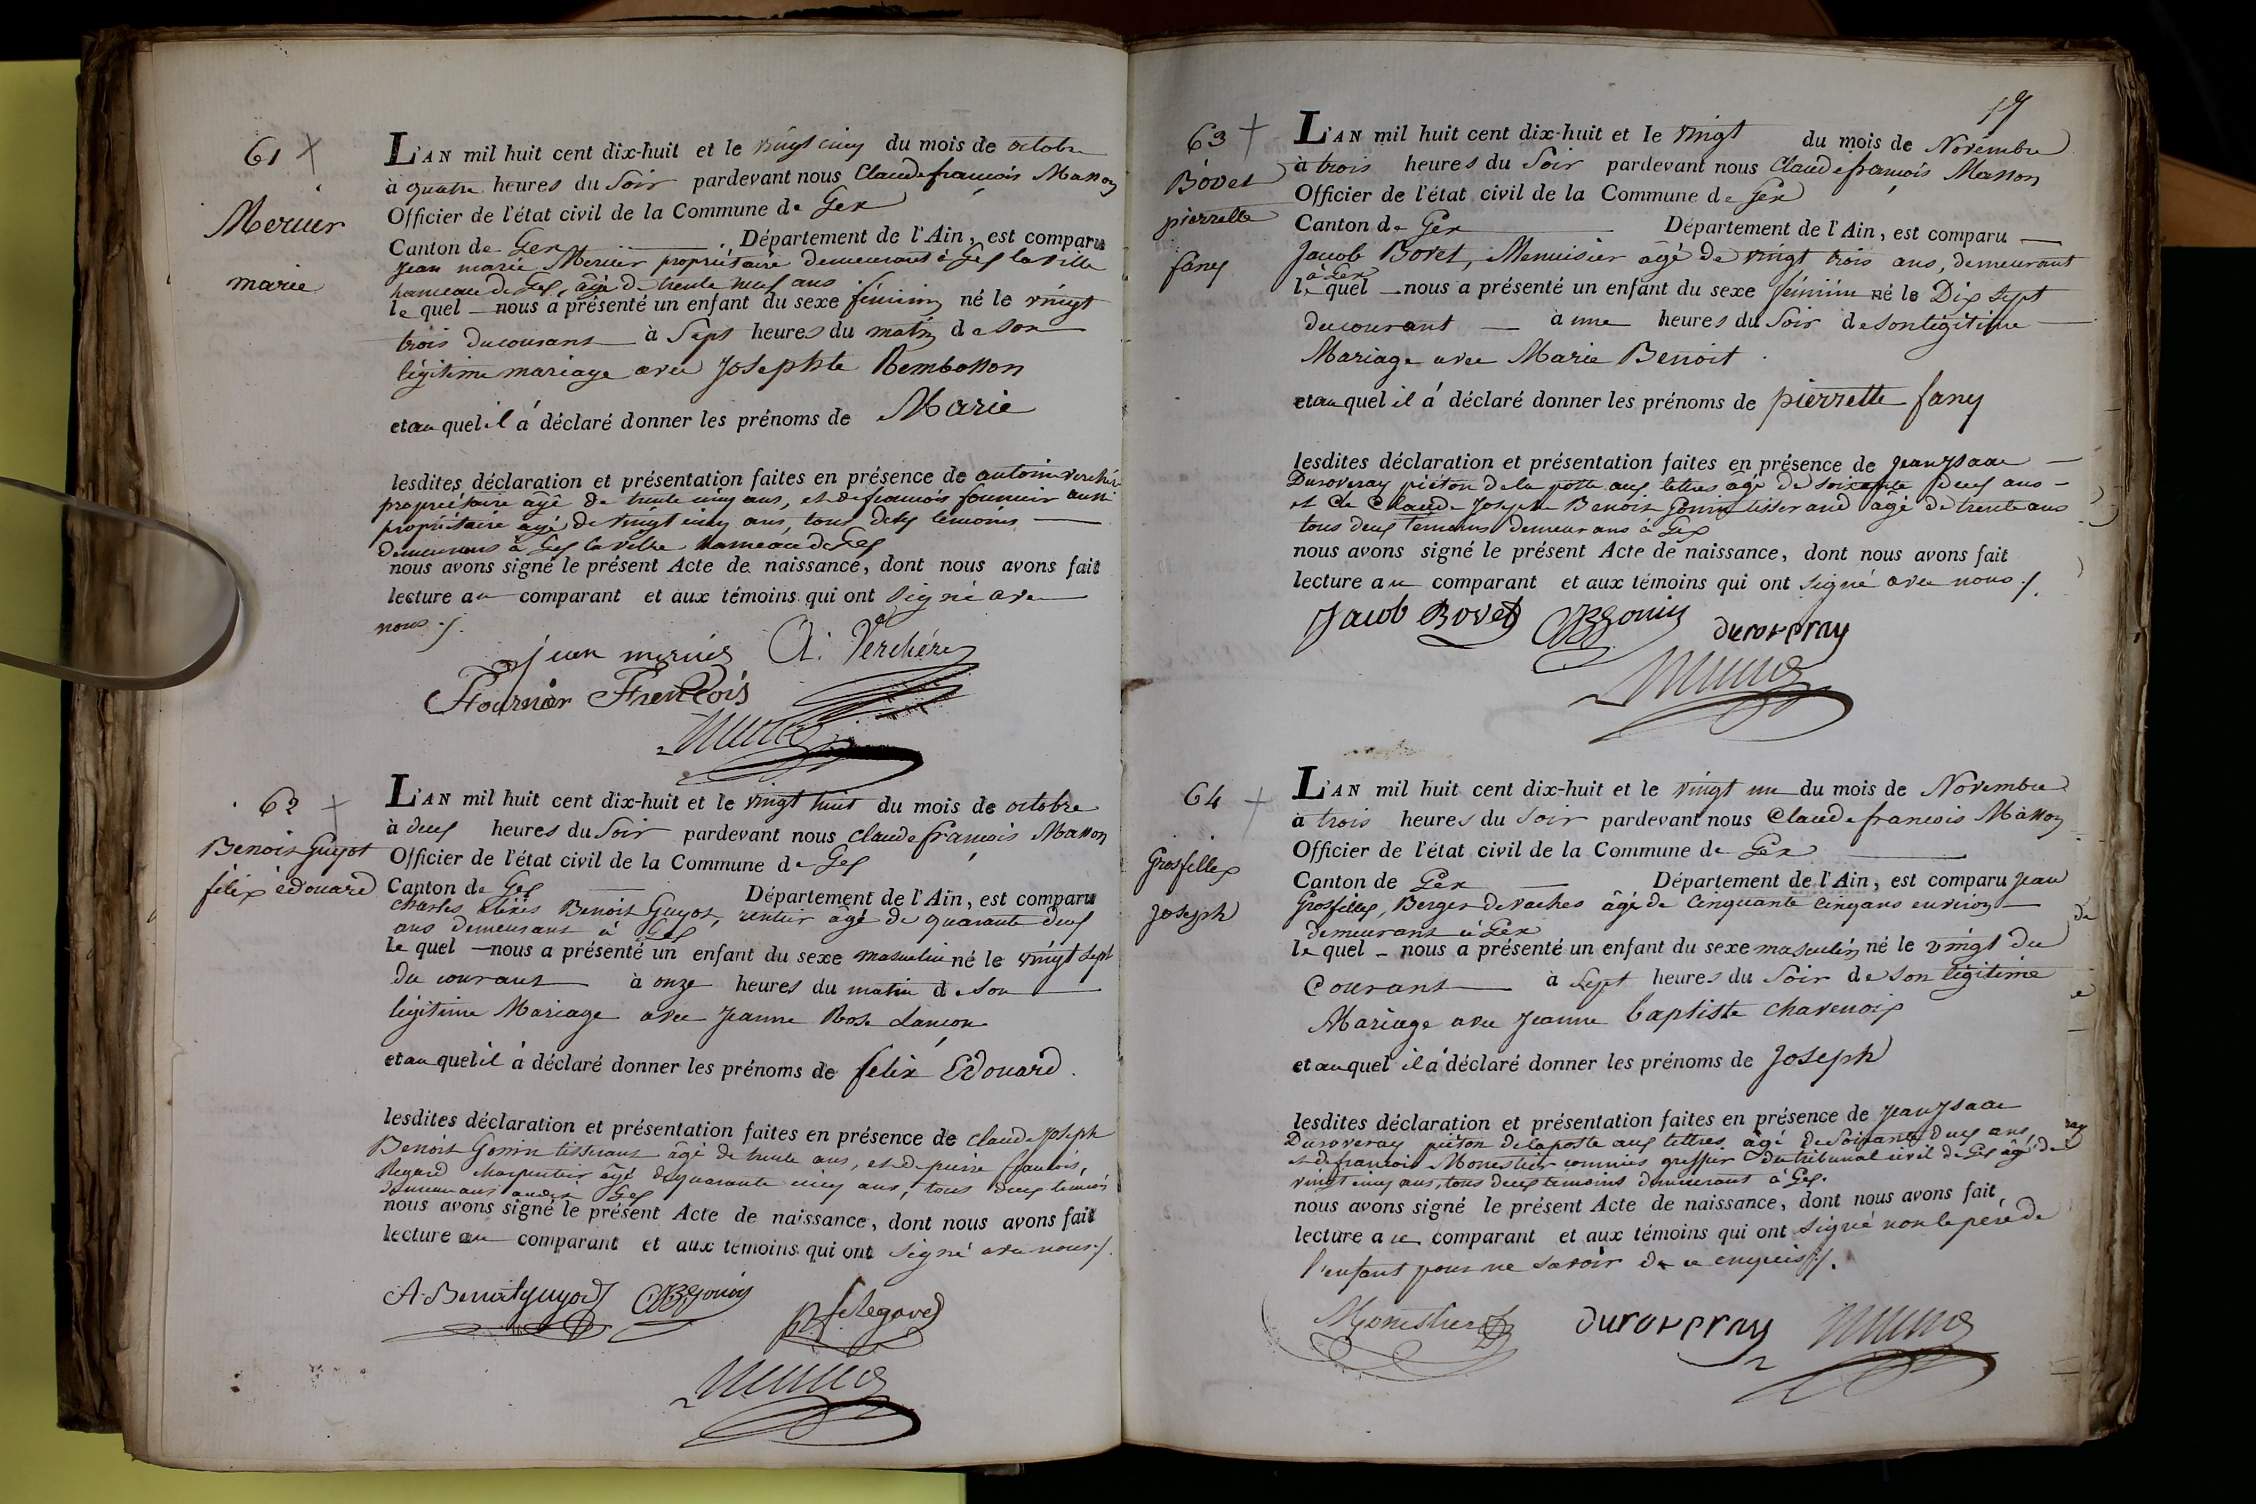 61
Mercier
marie
L'AN mil huit cent dix-huit et le vingt cinq du mois de octobre
à quatre heures du Soir pardevant nous Claude françois Masson
Officier de l'état civil de la Commune de Gex
Canton de Gex Département de l'Ain, est comparu
Jean marie Mercier propriétaire demeurant à Gex la ville
hameau de Gex, âgé de trente neuf ans
le quel nous a présenté un enfant du sexe féminin né le vingt
trois du courant à Sept heures du matin de son
légitime mariage avec Josephte Rembosson
et au quel il á déclaré donner les prénoms de Marie
lesdites déclaration et présentation faites en présence de antoine Verchère
propriétaire âgé de trente cinq ans, et de françois fournier aussi
propriétaire agé de vingt cinq ans, tous deux temoins
demeurans à Gex la ville hameau de Gex
nous avons signé le présent Acte de naissance, dont nous avons fait
lecture au comparant et aux témoins qui ont Signé avec
nous ./.
jean mercier A. Verchére
Fournier Frencois
62
Benoit Guyot
félix édouard
L'AN mil huit cent dix-huit et le vingt huit du mois de octobre
à deux heures du Soir pardevant nous claude françois Masson
Officier de l'état civil de la Commune de Gex
Canton de Gex Département de l'Ain, est comparu
charles Benoit Guyot, rentier âgé de quarante deux
ans demeurant à Gex
le quel nous a présenté un enfant du sexe masculin né le vingt sept
du courant à onze heures du matin de son
légitime Mariage avec Jeanne Rose Lançon
et au quel il á déclaré donner les prénoms de felix Edouard.
lesdites déclaration et présentation faites en présence de claude Joseph
Benoit Gonin tisserant âgé de trente ans, et de pierre françois
Regard charpentier âgé de quarante cinq ans, tous deux temoins
demeurans Gex
nous avons signé le présent Acte de naissance, dont nous avons fait
lecture au comparant et aux témoins qui ont signé avec nous ./.
A. Benoit guyot CJBgonin
pf Regard
17
63
Bovet
pierrette
fany
L'AN mil huit cent dix-huit et le vingt du mois de Novembre
à trois heures du Soir pardevant nous Claude françois Masson
Officier de l'état civil de la Commune de Gex
Canton de Gex Département de l'Ain, est comparu
Jacob Bovet, Menuisier âgé de vingt trois ans, demeurant
à Gex
le quel nous a présenté un enfant du sexe féminin né le Dix sept
du courant à une heures du Soir de son légitime
Mariage avec Marie Benoit.
et au quel il á déclaré donner les prénoms de pierrette fany
lesdites déclaration et présentation faites en présence de Jean Isaac
Duroveray piéton de la poste aux lettres âgé de soixante deux ans
et de Claude Joseph Benoit Gonin tisserand âgé de trente ans
tous deux témoins demeurans à Gex
nous avons signé le présent Acte de naissance, dont nous avons fait
lecture au comparant et aux témoins qui ont signé avec nous ./.
Jacob Bovet CJBgonin duroveray
64
Grosfillex
Joseph
L'AN mil huit cent dix-huit et le vingt un du mois de Novembre
à trois heures du Soir pardevant nous Claude francois Masson
Officier de l'état civil de la Commune de Gex
Canton de Gex Département de l'Ain, est comparu Jean
Grosfillex, Berger de vaches âgé de Cinquante cinq ans environ
demeurant à Gex
le quel nous a présenté un enfant du sexe masculin né le vingt du
Courant à Sept heures du Soir de son légitime
Mariage avec Jeanne baptiste chavenoix
et au quel il á déclaré donner les prénoms de Joseph
lesdites déclaration et présentation faites en présence de Jean Isaac
Duroveray piéton de la poste aux lettres âgé de Soixante deux ans,
et de francois Monestier commis greffier du tribunal civil de Gex âgé de
vingt cinq ans, tous deux temoins demeurant à Gex.
nous avons signé le présent Acte de naissance, dont nous avons fait,
lecture au comparant et aux témoins qui ont signé non le père de
l'enfant pour ne savoir de ce enquis ./.
Monestier duroveray